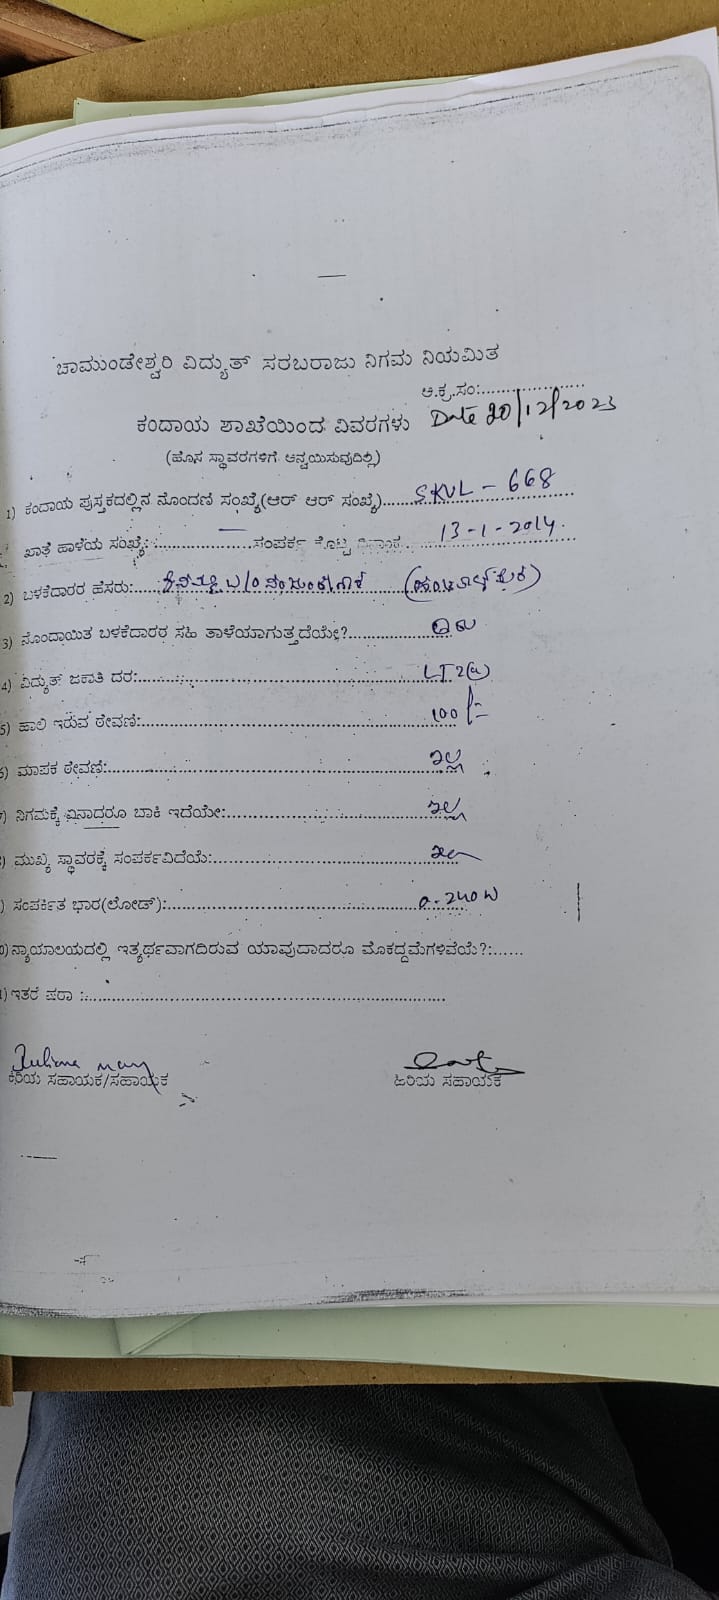 ಚಾಮುಂಡೇಶ್ವರಿ ವಿದ್ಯುತ್ ಸರಬರಾಜು ನಿಗಮ ನಿಯಮಿತ
ಆ.ಕ್ರ.ಸಂ:....................
ಕಂದಾಯ ಶಾಖೆಯಿಂದ ವಿವರಗಳು Date 20/12/2023
(ಹೊಸ ಸ್ಥಾವರಗಳಿಗೆ ಅನ್ವಯಿಸುವುದಿಲ್ಲ)
1) ಕಂದಾಯ ಪುಸ್ತಕದಲ್ಲಿನ ನೊಂದಣಿ ಸಂಖ್ಯೆ(ಆರ್ ಆರ್ ಸಂಖ್ಯೆ).....SKVL - 668
ಖಾತೆ ಹಾಳೆಯ ಸಂಖ್ಯೆ:................ಸಂಪರ್ಕ ಕೊಟ್ಟ ದಿನಾಂಕ......13-1-2014.
2) ಬಳಕೆದಾರರ ಹೆಸರು:....
3) ನೊಂದಾಯಿತ ಬಳಕೆದಾರರ ಸಹಿ ತಾಳೆಯಾಗುತ್ತದೆಯೇ?..............
4) ವಿದ್ಯುತ್ ಜಕಾತಿ ದರ:..........................................LT2(a)
5) ಹಾಲಿ ಇರುವ ಠೇವಣಿ:..........................................100/-
6) ಮಾಪಕ ಠೇವಣಿ:..........................................ಇಲ್ಲ
) ನಿಗಮಕ್ಕೆ ಏನಾದರೂ ಬಾಕಿ ಇದೆಯೇ:..............................ಇಲ್ಲ
) ಮುಖ್ಯ ಸ್ಥಾವರಕ್ಕೆ ಸಂಪರ್ಕವಿದೆಯೆ:..............................
) ಸಂಪರ್ಕಿತ ಭಾರ(ಲೋಡ್):..............................0-240W
0) ನ್ಯಾಯಾಲಯದಲ್ಲಿ ಇತ್ಯರ್ಥವಾಗದಿರುವ ಯಾವುದಾದರೂ ಮೊಕದ್ದಮೆಗಳಿವೆಯೆ?:......
1) ಇತರೆ ಷರಾ :............................................................
Juliana mary
ಕಿರಿಯ ಸಹಾಯಕ/ಸಹಾಯಕ ಹಿರಿಯ ಸಹಾಯಕ